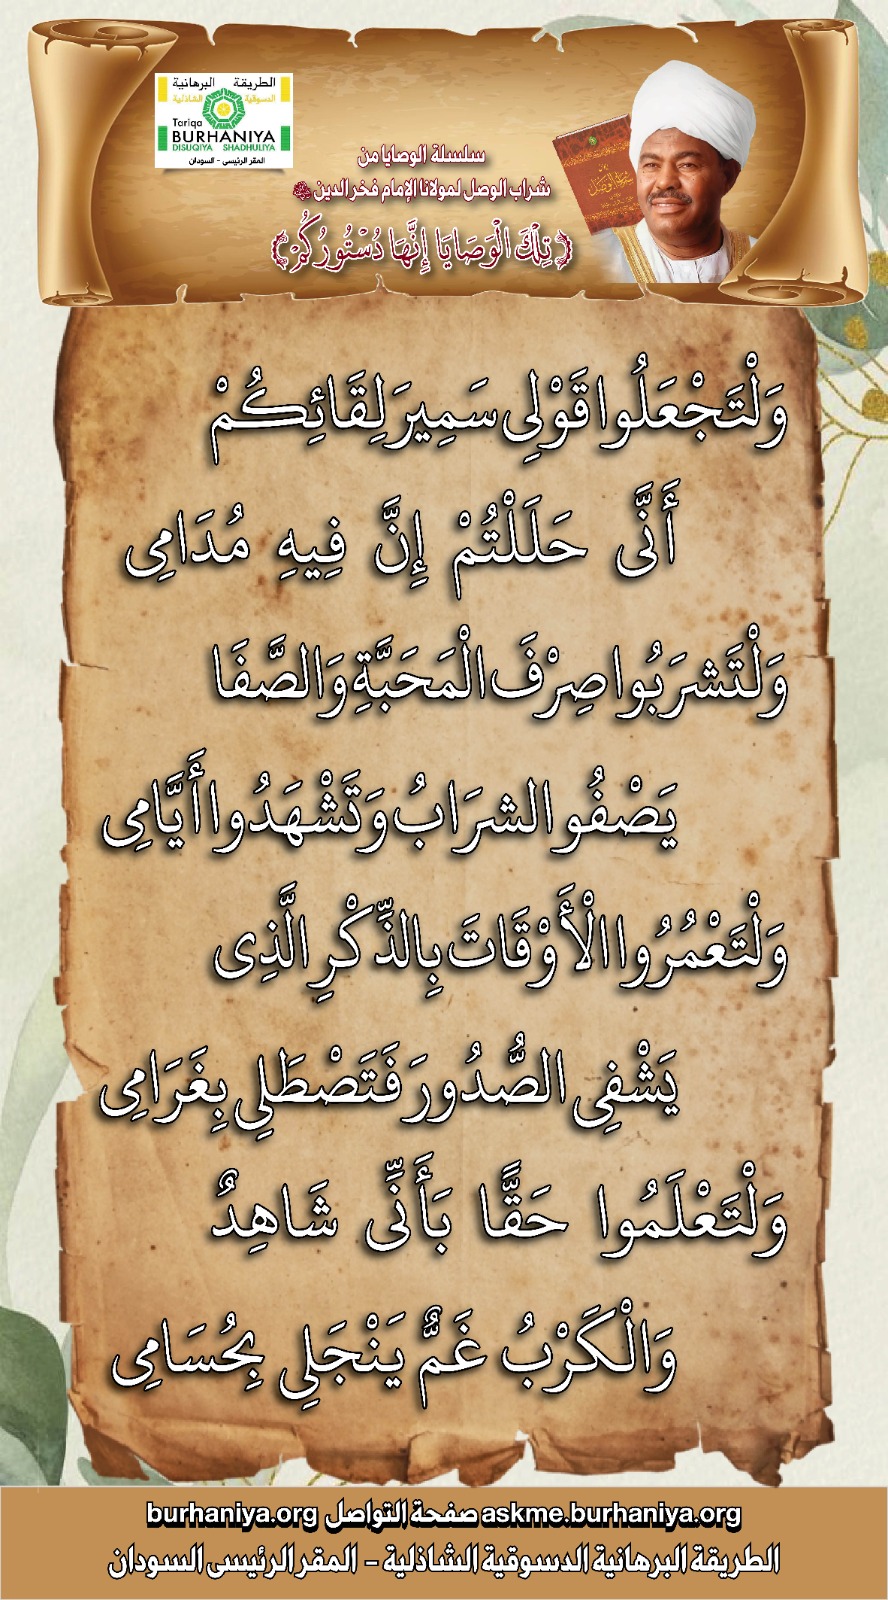 الطريقة البرهانية
الدسوقية الشاذلية
Tariqa
BURHANIYA
DISUQIYA SHADHULIYA
المقر الرئيسي - السودان
سلسلة الوصايا من
شراب الوصل لمولانا الإمام فخر الدين
﴿تِلْكَ الْوَصَايَا إِنَّهَا دُسْتُورُكُمْ﴾
شراب الوصل
وَلْتَجْعَلُوا قَوْلِى سَمِيرَ لِقَائِكُمْ
أَنَّى حَلَلْتُمْ إِنَّ فِيهِ مُدَامِى
وَلْتَشرَبُوا صِرْفَ الْمَحَبَّةِ وَالصَّفَا
يَصْفُو الشرَابُ وَتَشْهَدُوا أَيَّامِى
وَلْتَعْمُرُوا الْأَوْقَاتَ بِالذِّكْرِ الَّذِى
يَشْفِى الصُّدُورَ فَتَصْطَلِى بِغَرَامِى
وَلْتَعْلَمُوا حَقًّا بَأَنِّى شَاهِدٌ
وَالْكَرْبُ غَمٌّ يَنْجَلِى بِحُسَامِى
burhaniya.org صفحة التواصل askme.burhaniya.org
الطريقة البرهانية الدسوقية الشاذلية - المقر الرئيسى السودان